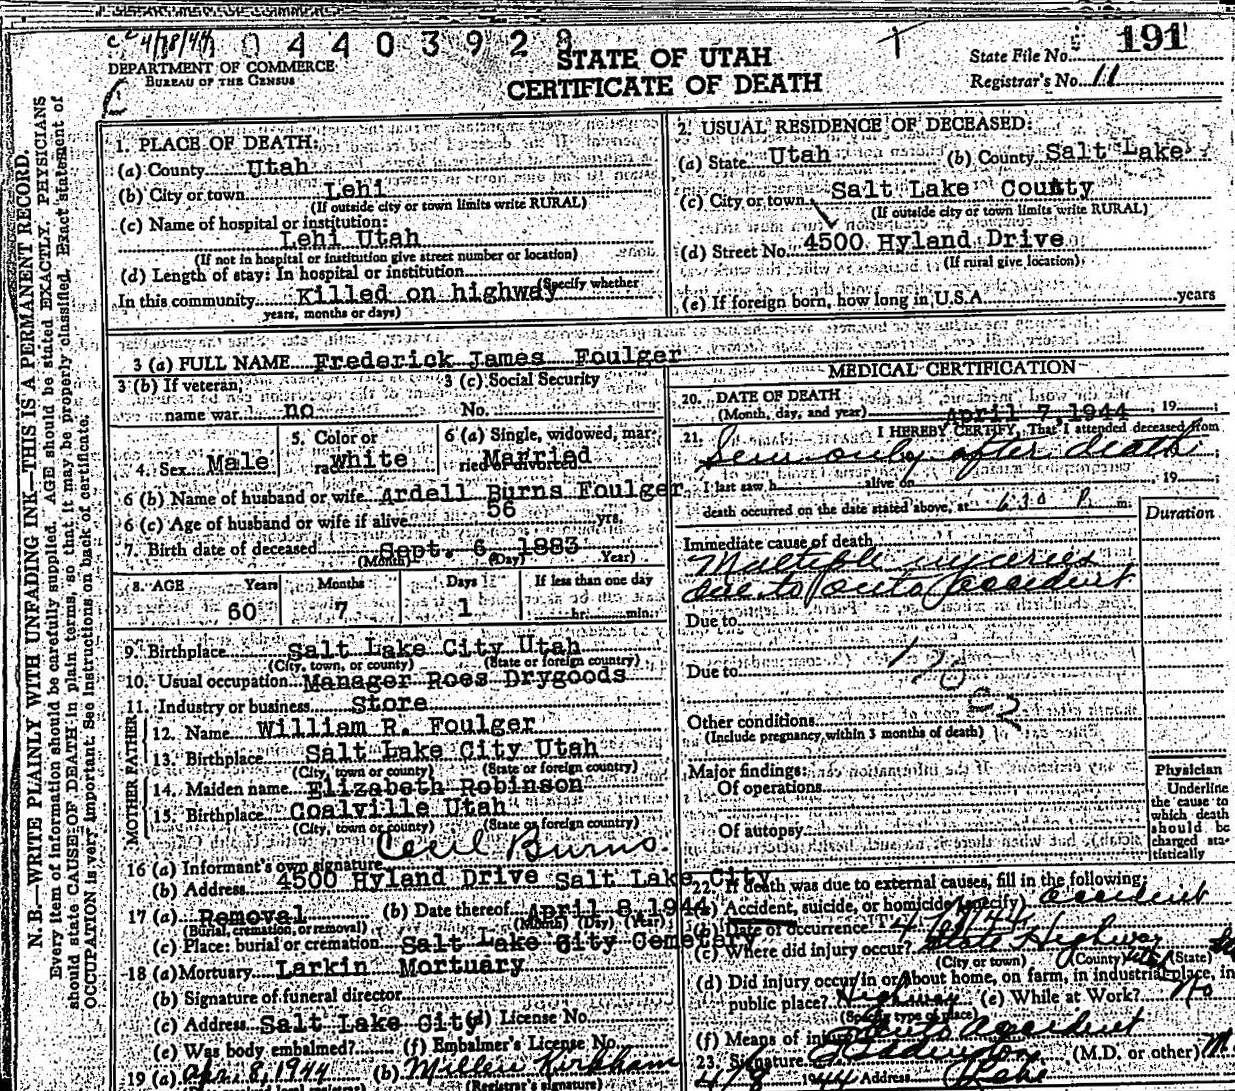 c c 4/18/44
0 4 4 0 3 9 2 8
DEPARTMENT OF COMMERCE
BUREAU OF THE CENSUS
STATE OF UTAH
CERTIFICATE OF DEATH
State File No. 191
Registrar's No. 11
N. B.—WRITE PLAINLY WITH UNFADING INK—THIS IS A PERMANENT RECORD.
Every item of information should be carefully supplied. AGE should be stated EXACTLY. PHYSICIANS
should state CAUSE OF DEATH in plain terms, so that it may be properly classified. Exact statement of
OCCUPATION is very important. See Instructions on back of certificate.
1. PLACE OF DEATH:
(a) County Utah
(b) City or town Lehi
(If outside city or town limits write RURAL)
(c) Name of hospital or institution:
Lehi Utah
(If not in hospital or institution give street number or location)
(d) Length of stay: In hospital or institution
(Specify whether
In this community Killed on highway
years, months or days)
2. USUAL RESIDENCE OF DECEASED:
(a) State Utah (b) County Salt Lake
(c) City or town Salt Lake County
(If outside city or town limits write RURAL)
(d) Street No. 4500 Hyland Drive
(If rural give location)
(e) If foreign born, how long in U.S.A. years
3 (a) FULL NAME Frederick James Foulger
3 (b) If veteran,
name war no
3 (c) Social Security
No.
4. Sex Male
5. Color or
race white
6 (a) Single, widowed, mar-
ried or divorced Married
6 (b) Name of husband or wife Ardell Burns Foulger
6 (c) Age of husband or wife if alive 56 yrs.
7. Birth date of deceased Sept. 6, 1883
(Month) (Day) Year)
8. AGE Years Months Days If less than one day
60 7 1 hr. min.
9. Birthplace Salt Lake City Utah
(City, town, or county) (State or foreign country)
10. Usual occupation Manager Roes Drygoods
11. Industry or business Store
FATHER
12. Name William R. Foulger
13. Birthplace Salt Lake City Utah
(City, town or county) (State or foreign country)
MOTHER
14. Maiden name Elizabeth Robinson
15. Birthplace Coalville Utah
(City, town or county) (State or foreign country)
16 (a) Informant's own signature Cecil Burns.
(b) Address 4500 Hyland Drive Salt Lake City
17 (a) Removal (b) Date thereof April 8, 1944
(Burial, cremation, or removal) (Month) (Day) (Year)
(c) Place: burial or cremation Salt Lake City Cemetery
18 (a) Mortuary Larkin Mortuary
(b) Signature of funeral director
(c) Address Salt Lake City (d) License No.
(e) Was body embalmed? (f) Embalmer's License No.
19 (a) Apr. 8, 1944 (b) Millen Kirkham
(Registrar's signature)
MEDICAL CERTIFICATION
20. DATE OF DEATH
(Month, day, and year) April 7, 1944, 19 ;
21. I HEREBY CERTIFY, That I attended deceased from
Seen only after death
I last saw h alive on , 19 ;
death occurred on the date stated above, at 6 30 P. m.
Duration
Immediate cause of death
Multiple injuries
due to auto accident
Due to
Due to
Other conditions
(Include pregnancy within 3 months of death)
Major findings:
Of operations
Of autopsy
Physician
Underline
the cause to
which death
should be
charged sta-
tistically
22. If death was due to external causes, fill in the following:
(a) Accident, suicide, or homicide (specify) accident
(b) Date of occurrence 4/7/44
(c) Where did injury occur? State Highway
(City or town) (County) (State)
(d) Did injury occur in or about home, on farm, in industrial place, in
public place? Highway (e) While at Work? No
(Specify type of place)
(f) Means of injury Auto Accident
23. Signature (M.D. or other) M.
4/8 1944 Address